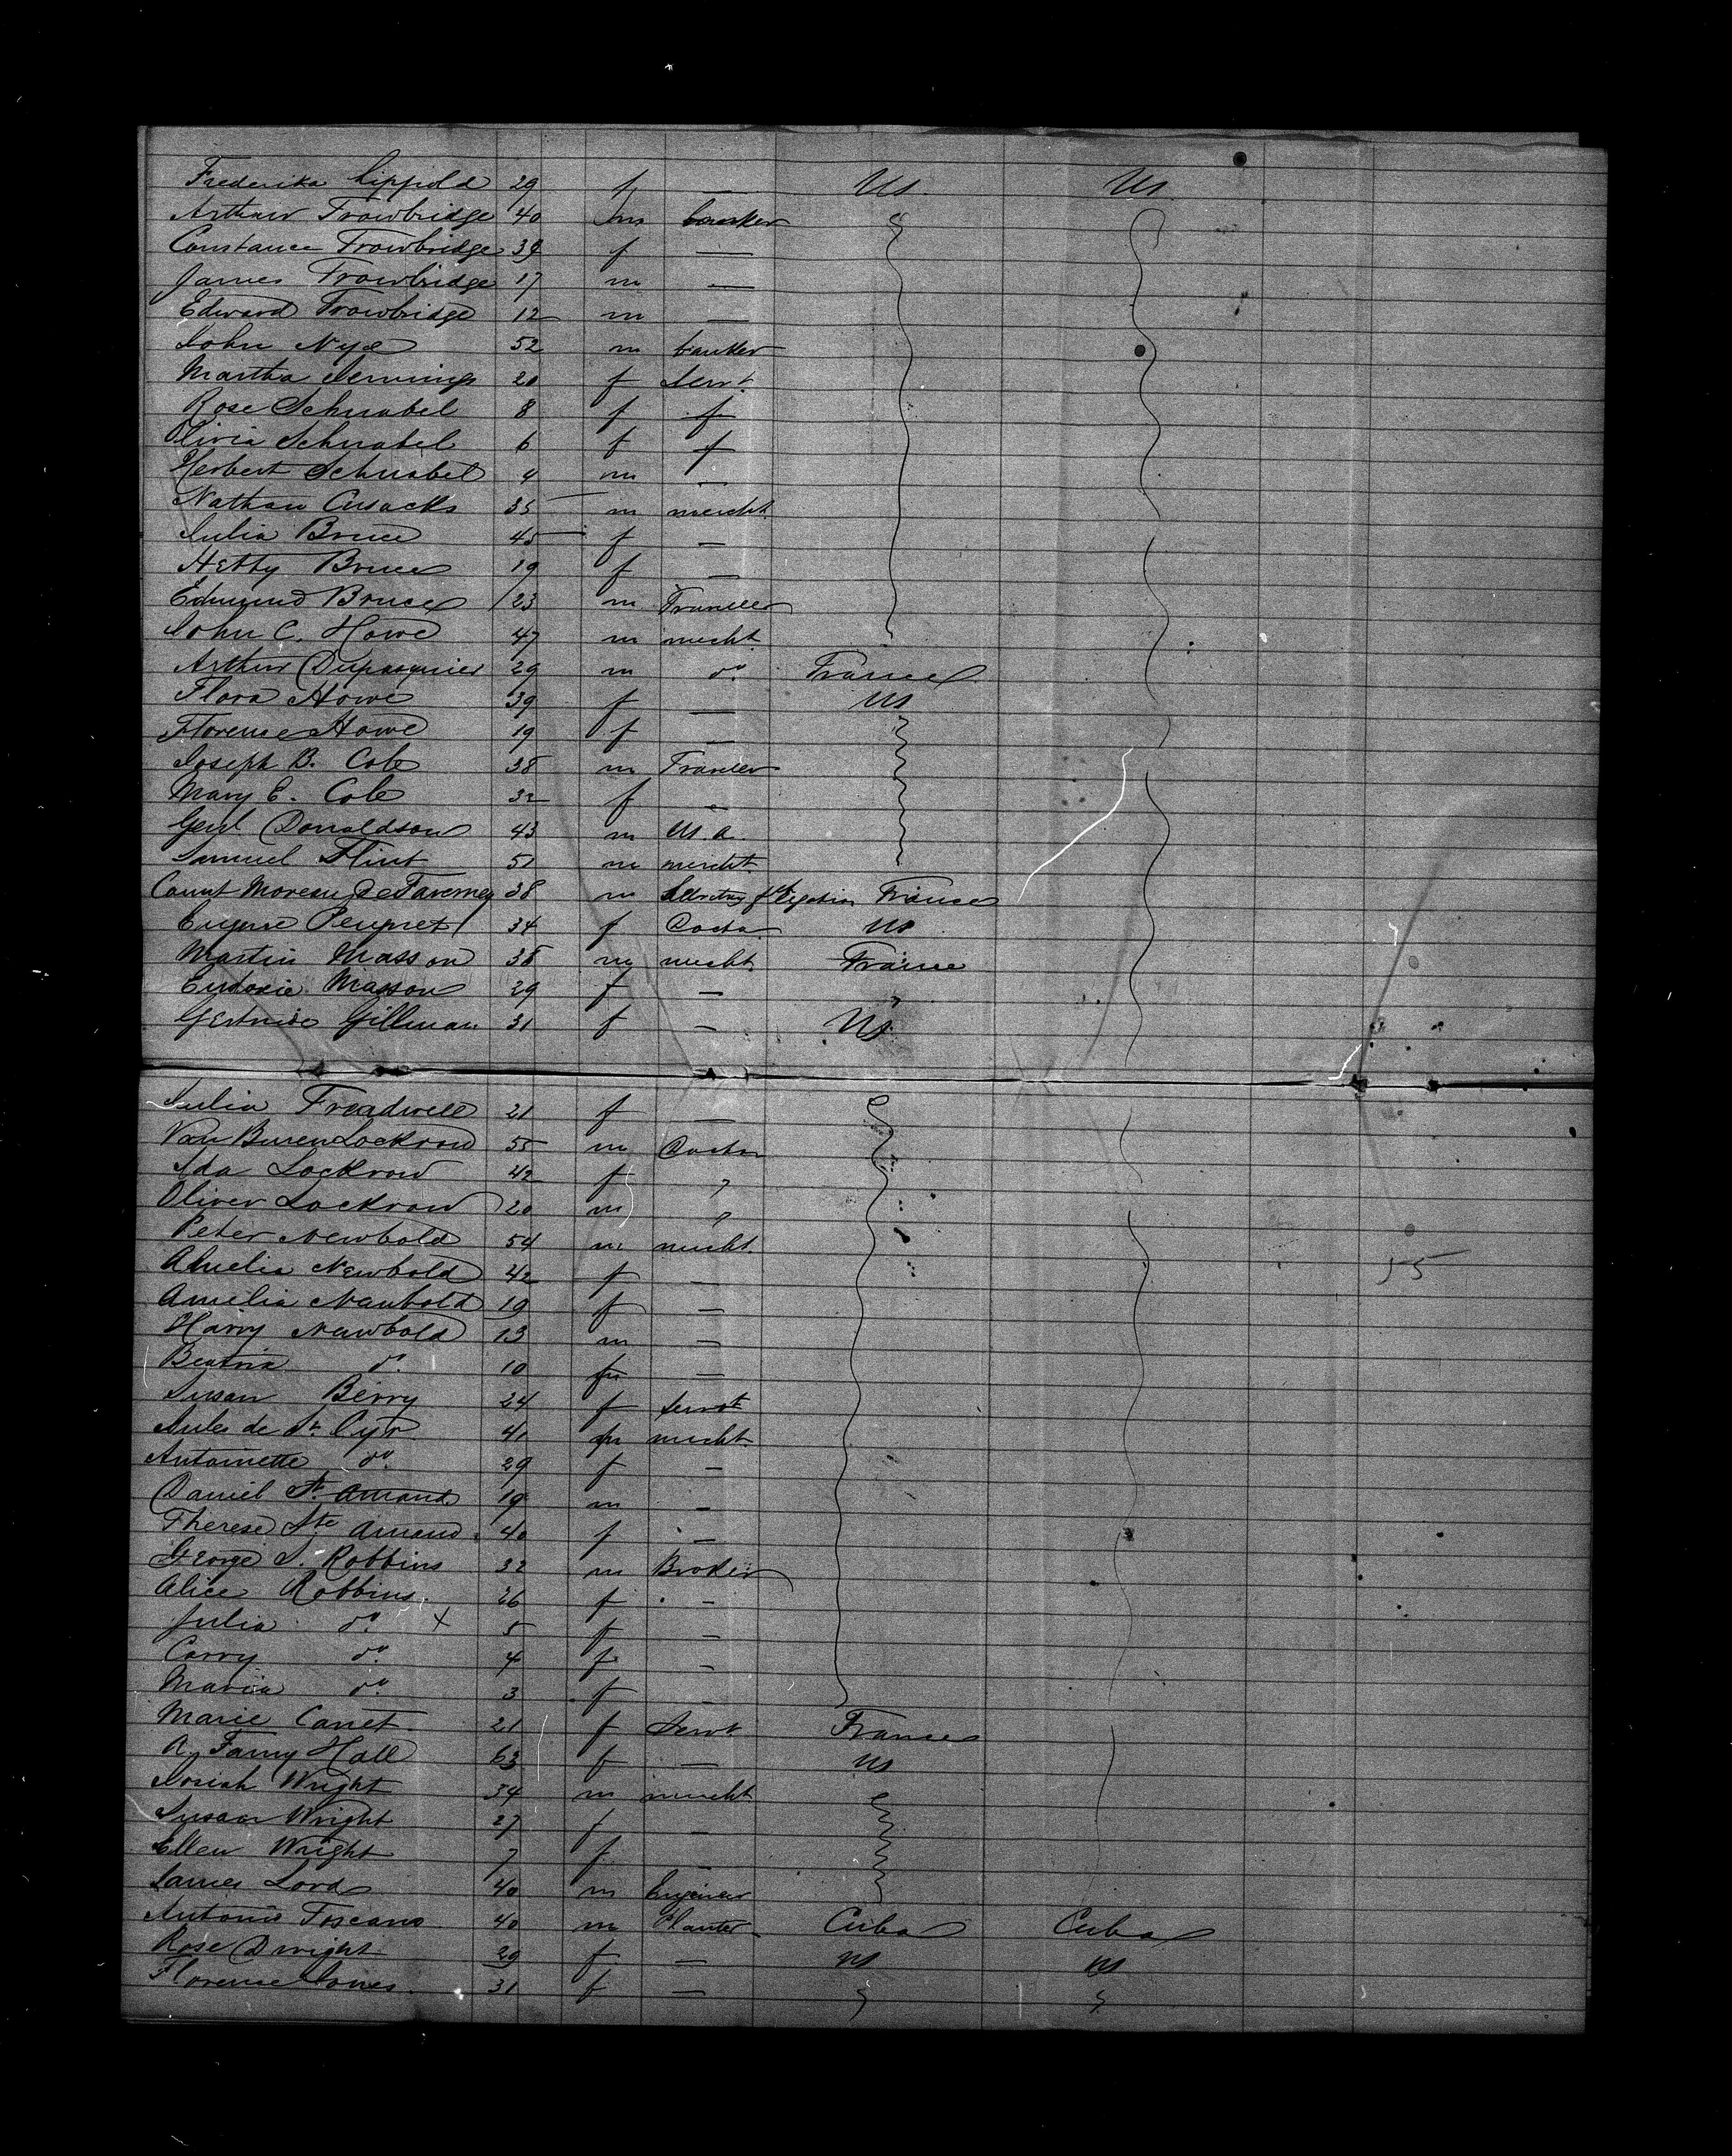 Frederika Lippold 29 f — Us. Us
Arthur Trowbridge 40 m banker
Constance Trowbridge 39 f —
James Trowbridge 17 m —
Edward Trowbridge 12 m —
John Nye 52 m banker
Martha Jennings 20 f Servt.
Rose Schnabel 8 f f
Olivia Schnabel 6 f f
Herbert Schnabel 4 m —
Nathan Cusacks 35 m mercht.
Julia Bruce 45 f —
Hetty Bruce 19 f —
Edmund Bruce 23 m
John C. Howe 47 m mecht.
Arthur Dupasquier 29 m do. France
Flora Howe 39 f — Us
Florence Howe 19 f —
Joseph B. Cole 38 m
Mary E. Cole 32 f —
Genl Donaldson 43 m U.S.A.
Samuel Flint 51 m mercht.
Count Moreau de 38 m Secretary of Legation France
Peugnet 34 f Doctor Us
Martin Masson 38 m mecht. France
Eudoxie Masson 29 f —
Gertrude Gillman 31 f — Us.
Julia Treadwell 21 f —
Van Buren Lockrow 55 m Doctor
Ida Lockrow 42 f "
Oliver Lockrow 20 m "
Peter Newbold 54 m mecht.
Amelia Newbold 42 f — 55
Amelia Newbold 19 f —
Harry Newbold 13 m —
Beatrix do. 10 f —
Susan Berry 24 f Servt
Jules de St. Cyr 41 m mecht.
Antoinette do. 29 f —
Daniel St. Amand 19 m —
Therese Ste Amand. 40 f —
George S. Robbins 32 m Broker
Alice Robbins. 26 f —
Julia do. x 5 f —
Carry do. 4 f —
Maria do. 3 f —
Marie Canet 21 f Servt France
A. Fanny Hall 63 f — Us
Josiah Wright 34 m mecht.
Susan Wright 27 f —
Ellen Wright 7 f —
James Lord 40 m Engineer
Antonio Toscano 40 m Planter Cuba Cuba
Rose Dwight 29 f — Us Us
Florence Jones. 31 f —